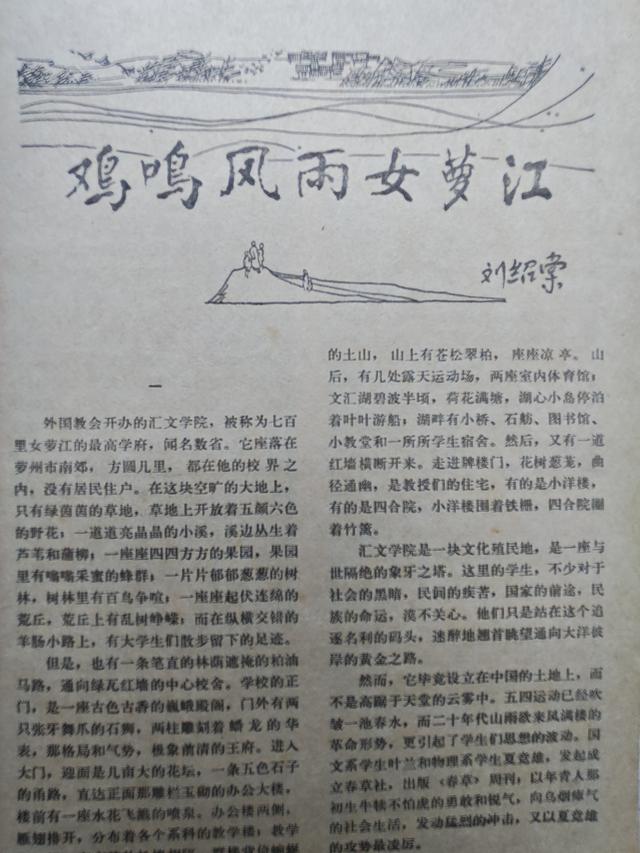 鸡鸣风雨女萝江
刘绍棠
一
外国教会开办的汇文学院，被称为七百
里女萝江的最高学府，闻名数省。它座落在
萝州市南郊，方圆几里，都在他的校界之
内，没有居民住户。在这块空旷的大地上，
只有绿茵茵的草地，草地上开放着五颜六色
的野花；一道道亮晶晶的小溪，溪边丛生着
芦苇和蒲柳；一座座四四方方的果园，果园
里有嗡嗡采蜜的蜂群；一片片郁郁葱葱的树
林，树林里有百鸟争喧；一座座起伏连绵的
荒丘，荒丘上有乱树峥嵘；而在纵横交错的
羊肠小路上，有大学生们散步留下的足迹。
但是，也有一条笔直的林荫遮掩的柏油
马路，通向绿瓦红墙的中心校舍。学校的正
门，是一座古色古香的巍峨殿阁，门外有两
只张牙舞爪的石狮，两柱雕刻着蟠龙的华
表，那格局和气势，极象前清的王府。进入
大门，迎面是几亩大的花坛，一条五色石子
的甬路，直达正面那雕栏玉砌的办公大楼，
楼前有一座水花飞溅的喷泉。办公楼两侧，
雁翅排开，分布着各个系科的教学楼；教学
的土山，山上有苍松翠柏，座座凉亭。山
后，有几处露天运动场，两座室内体育馆；
文汇湖碧波半顷，荷花满塘，湖心小岛停泊
着叶叶游船；湖畔有小桥、石舫、图书馆、
小教堂和一所所学生宿舍。然后，又有一道
红墙横断开来。走进牌楼门，花树葱茏，曲
径通幽，是教授们的住宅，有的是小洋楼，
有的是四合院，小洋楼围着铁栅，四合院圈
着竹篱。
汇文学院是一块文化殖民地，是一座与
世隔绝的象牙之塔。这里的学生，不少对于
社会的黑暗，民间的疾苦，国家的前途，民
族的命运，漠不关心。他们只是站在这个追
逐名利的码头，迷醉地翘首眺望通向大洋彼
岸的黄金之路。
然而，它毕竟设立在中国的土地上，而
不是高踞于天堂的云雾中。五四运动已经吹
皱一池春水，而二十年代山雨欲来风满楼的
革命形势，更引起了学生们思想的波动。国
文系学生叶兰和物理系学生夏竞雄，发起成
立春草社，出版《春草》周刊；以年青人那
初生牛犊不怕虎的勇敢和锐气，向乌烟瘴气
的社会生活，发动猛烈的冲击，又以夏竞雄
的攻势最凌厉。